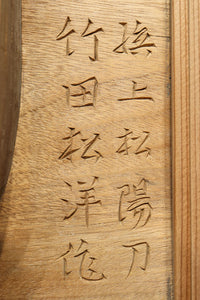 浜上松陽刀
竹田松洋作